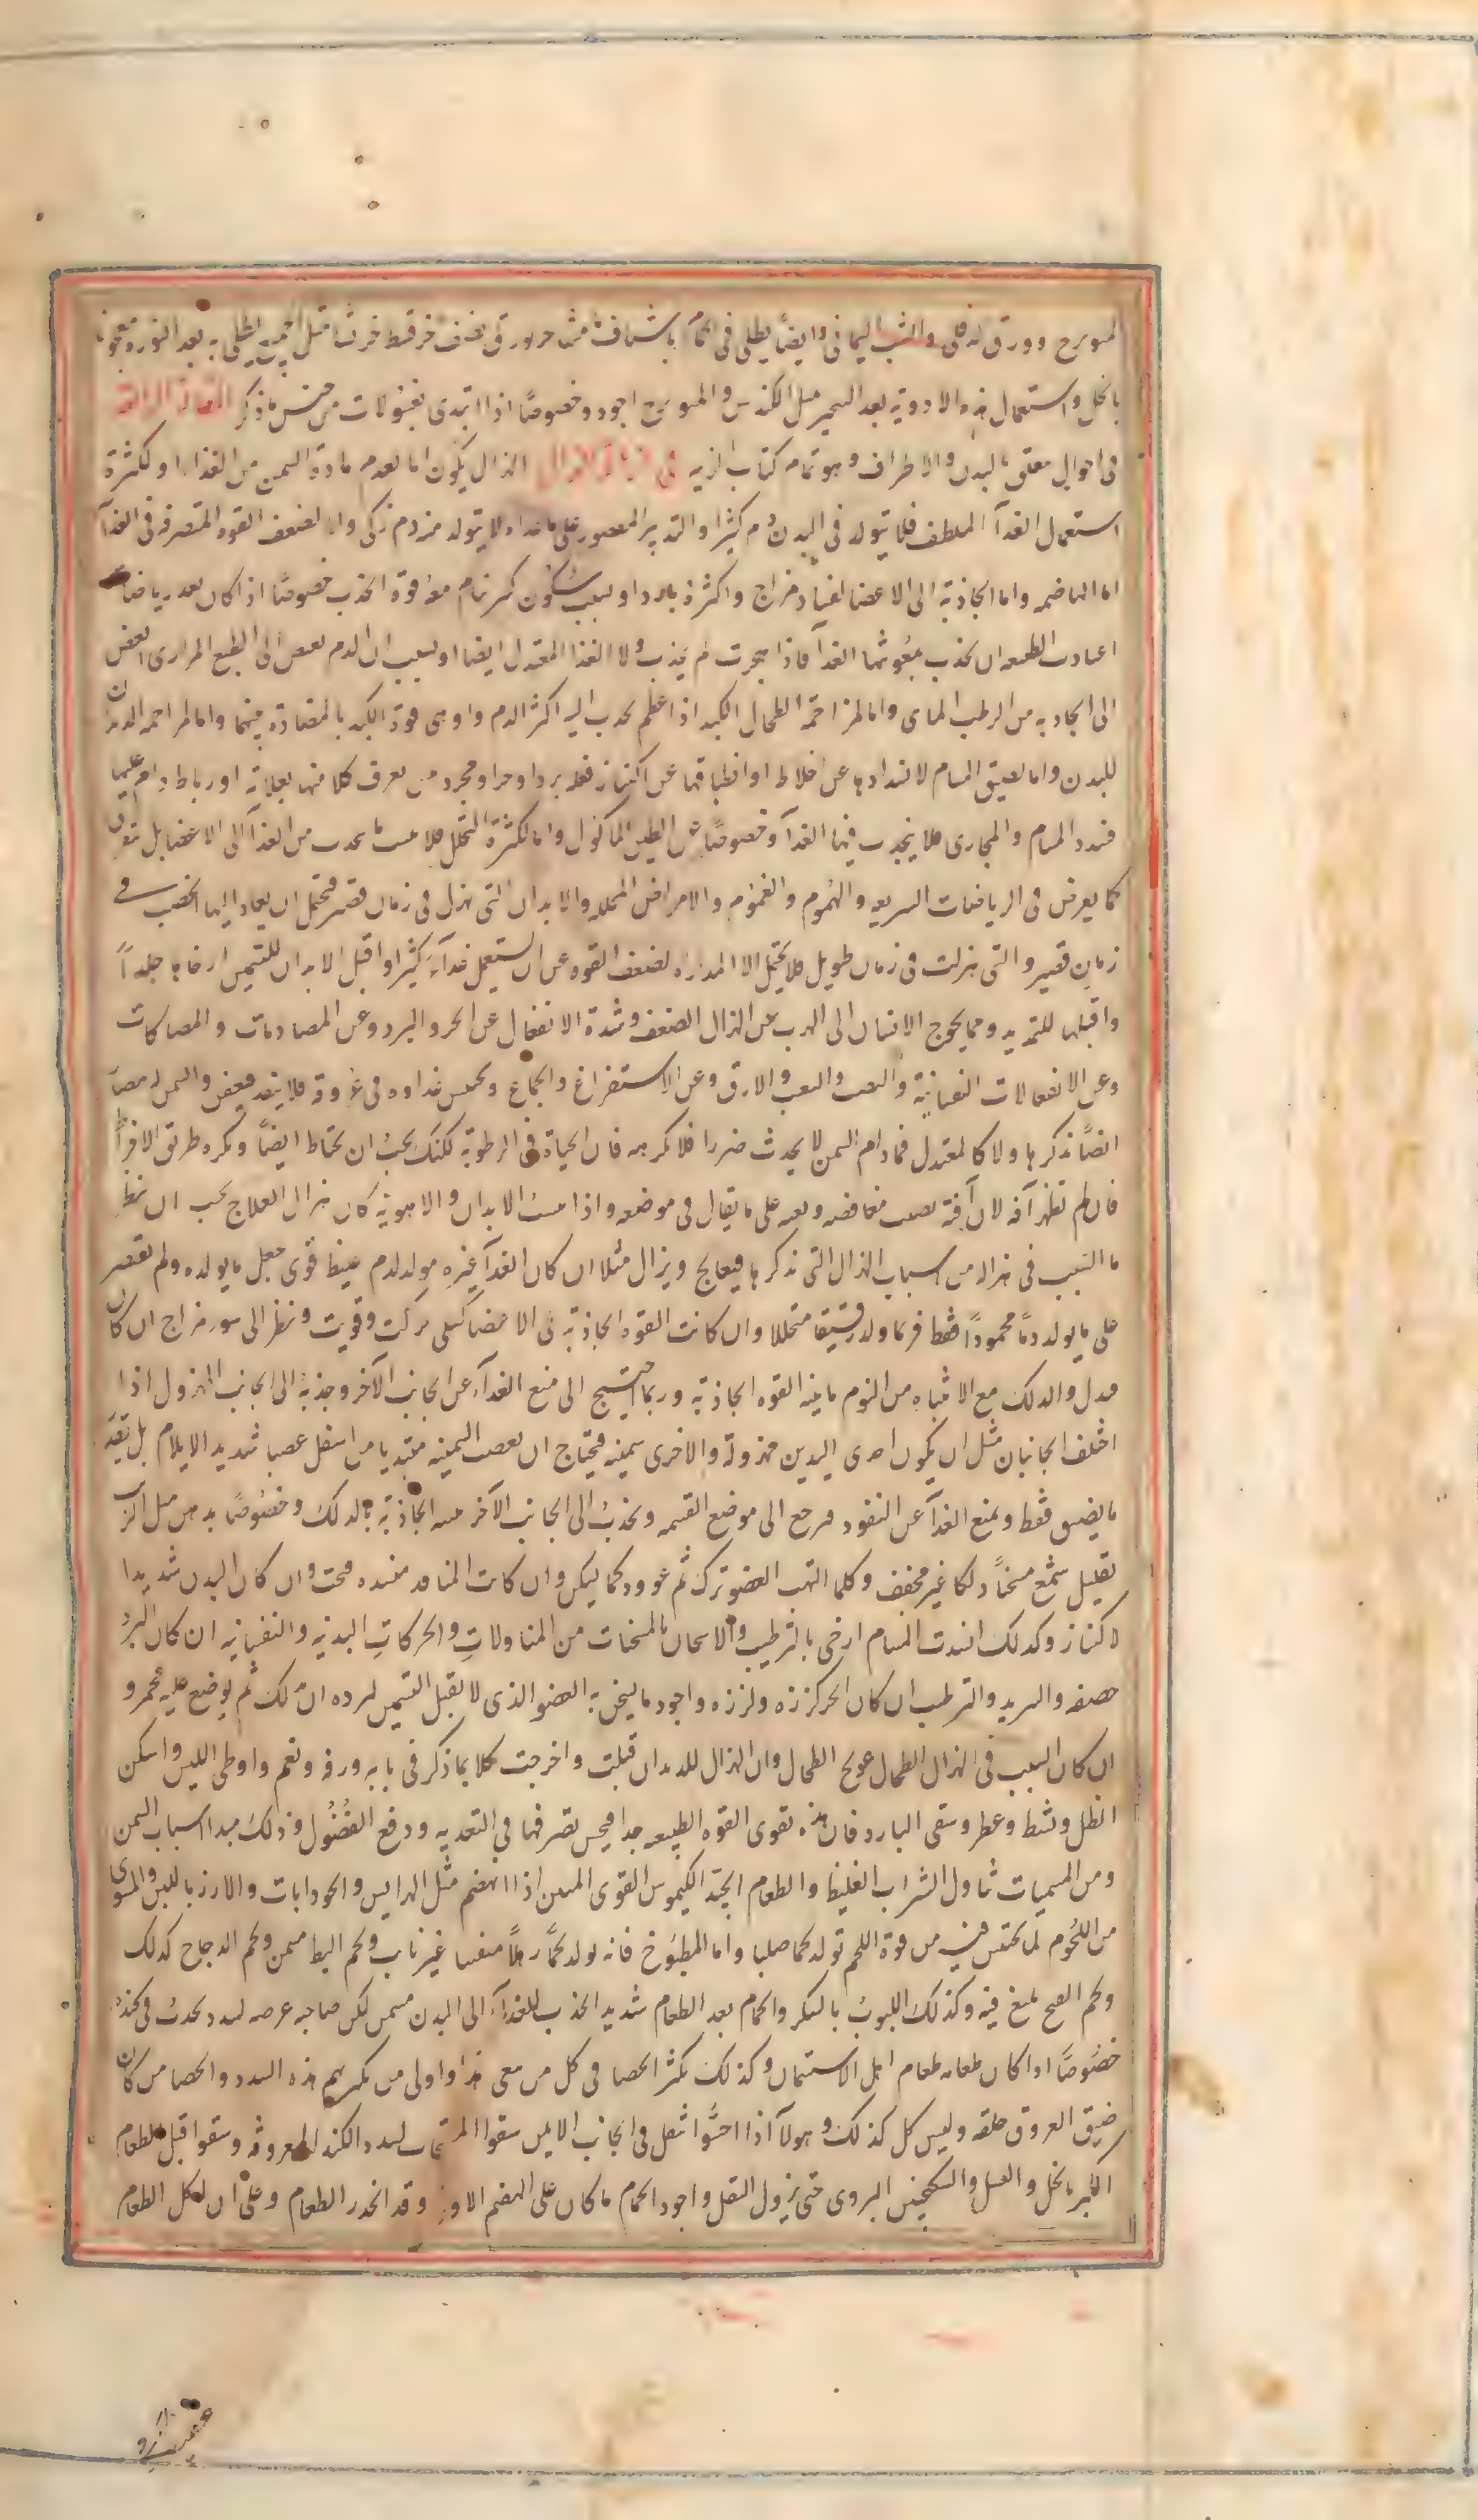 الميويزج وورق الدفلى والشب اليماني وايضا يطلى في الحمام
بالخل واستعمال هذه الادوية بعد التحمير مثل الكندس والميويزج اجود وخصوصًا اذا ابتدى بغسولات من جنس ما ذكر المقالة الرابعة
في احوال متعلق بالبدن والاطراف وهو تمام كتاب الزينة الهزال يكون اما لعدم مادة السمن من الغذاء او لكثرة
استعمال الغذآ الملطف فلا يتولد في البدن دم كثير او التدبير المقصور على ما غذاوه لا يتولد منه دم زكى واما لضعف القوه المتصرفه في الغذآ
اما الهاضمه واما الجاذبة الى الاعضا لفساد مزاج واكثره بارد او بسبب سكون كثير نام معه قوة الجذب خصوصًا اذا كان بعد رياضات
اعتادت الطبيعه ان تجذب بمعونتها الغذآ فاذا هجرت لم يجذب ولا الغذا المعتدل ايضا او بسبب ان الدم بغيض الى الطبع المرارى ابغض
الى الجاذبه من الرطب المائى واما لمزاحمة الطحال الكبد اذا عظم يجذب اليه اكثر الدم واوهى قوة الكبد بالمضادة بينهما واما لمزاحمه الديدان
للبدن واما لضيق المسام لانسدادها عن اخلاط او انطباقها عن اكتناز فعله برد او حر او مجرد يبس يعرف كلا منها بعلاماته او رباط دام عليها
فسدد المسام والمجارى فلا ينجذب فيها الغذآ وخصوصًا عن الطين الماكول واما لكثرة التحلل فلا يثبت ما يجذب من الغذآ الى الاعضا بل يتفرق
كما يعرض في الرياضات السريعه والهموم والغموم والامراض المحلله والابدان التى تهزل في زمان قصير فتحتمل ان يعاد اليها الخصب في
زمان قصير والتى هزلت في زمان طويل فلا يحتمل الا المداراه لضعف القوه عن ان يستعمل غذآء كثيرا واقبل الابدان للتسمين ارخاها جلداً
واقبلها للتمديد ومما يحوج الانسان الى الهرب عن الهزال الضعف وشدة الانفعال عن الحر والبرد وعن المصادمات والمصاكات
وعن الانفعالات النفسانية والنصب والتعب والارق وعن الاستفراغ والجماع ويحتبس غذاوه في عروقه فلا ينفذ فيعفن والسمن له مضار
ايضًا نذكرها ولا كالمعتدل فمادام السمن لا يحدث ضررا فلا تكرهه فان الحياة في الرطوبة لكنك يجب ان تحتاط ايضًا وتكره طريق الافراط
فان لم تظهر آفة لان آفته تصيب مغافصه وبغته على ما يقال في موضعه واذا مست الابدان والاهوية كان هزال العلاج يجب ان ينظر
ما السبب في هزاله من اسباب الهزال التى نذكرها فيعالج ويزال مثلا ان كان الغذآ غيره مولد لدم غليظ قوى جعل ما يولده ولم يقتصر
على ما يولد دمًا محمودًا فقط فربما ولد رقيقا متحللا وان كانت القوه الجاذبة في الاعضا كسلى حركت وقويت ونظر الى سوء مزاج ان كان
فبدل والدلك مع الانتباه من النوم ما ينبه القوه الجاذبة وربما احتيج الى منع الغذآء عن الجانب الآخر وجذبه الى الجانب المهزول اذا
اختلف الجانبان مثل ان يكون احدى اليدين مهزولة والاخرى سمينه فيحتاج ان تعصب السمينه مبتديا من اسفل عصبا شديد الايلام بل بقدر
ما يضيق فقط ويمنع الغذآ عن النفوذ فيرجع الى موضع القسمه ويجذب الى الجانب الآخر الجاذبة بالدلك وخصوصًا بدهن مثل الزيت
بقليل شمع مسخناً دلكا غير مجفف وكلما التهب العضو ترك ثم عوود كما يسكن وان كانت المنافذ منسده فتحت وان كان البدن شديد
الاكتناز وكذلك انسدت المسام ارخى بالترطيب والاسخان بالمسخنات من المتناولات والحركات البدنيه والنفسانيه ان كان البرد
حصفه والتبريد والترطيب ان كان الحر كززه ولززه واجود ما يسخن به العضو الذى لا يقبل التسمين لبرده ان يدلك ثم يوضع عليه محمر و
ان كان السبب في الهزال الطحال عولج الطحال وان الهزال للديدان قتلت واخرجت كلا بما ذكر في بابه ورفه ونعم واوطى اللين واسكن
الظل ونشط وعطر وسقى البارد فان هذه تقوى القوه الطبيعه جدا فيحسن تصرفها في التغذيه ودفع الفضول وذلك مبدا اسباب السمن
ومن المسمنات تناول الشراب الغليظ والطعام الجيد الكيموس القوى المتين اذا انهضم مثل الهرايس والجوذابات والارز باللبن والمشوى
من اللحوم لما يحتبس فيه من قوة اللحم تولد لحما صلبا واما المطبوخ فانه يولد لحمًا رهلاً منفشا غير ثابت ولحم البط مسمن ولحم الدجاج كذلك
ولحم القبج بليغ فيه وكذلك اللبوب بالسكر والحمام بعد الطعام شديد الجذب للغذآء الى البدن مسمن لكن صاحبه عرضه لسدد يحدث في كبده
خصوصًا اذا كان طعامه طعام اهل الاستسمان وكذلك يكثر الحصا في كل من سعى هذا واولى من يكثر بهم هذه السدد والحصا من كان
ضيق العروق خلقه وليس كل كذلك وهولآ اذا احسوا ثقل في الجانب الايمن سقوا المفتحات لسدد الكبد المعروفه وسقوا قبل الطعام
الكبر بالخل والعسل والسكنجبين البزورى حتى يزول الثقل واجود الحمام ما كان على الهضم الاول وقد انحدر الطعام وعلى ان لكل الطعام